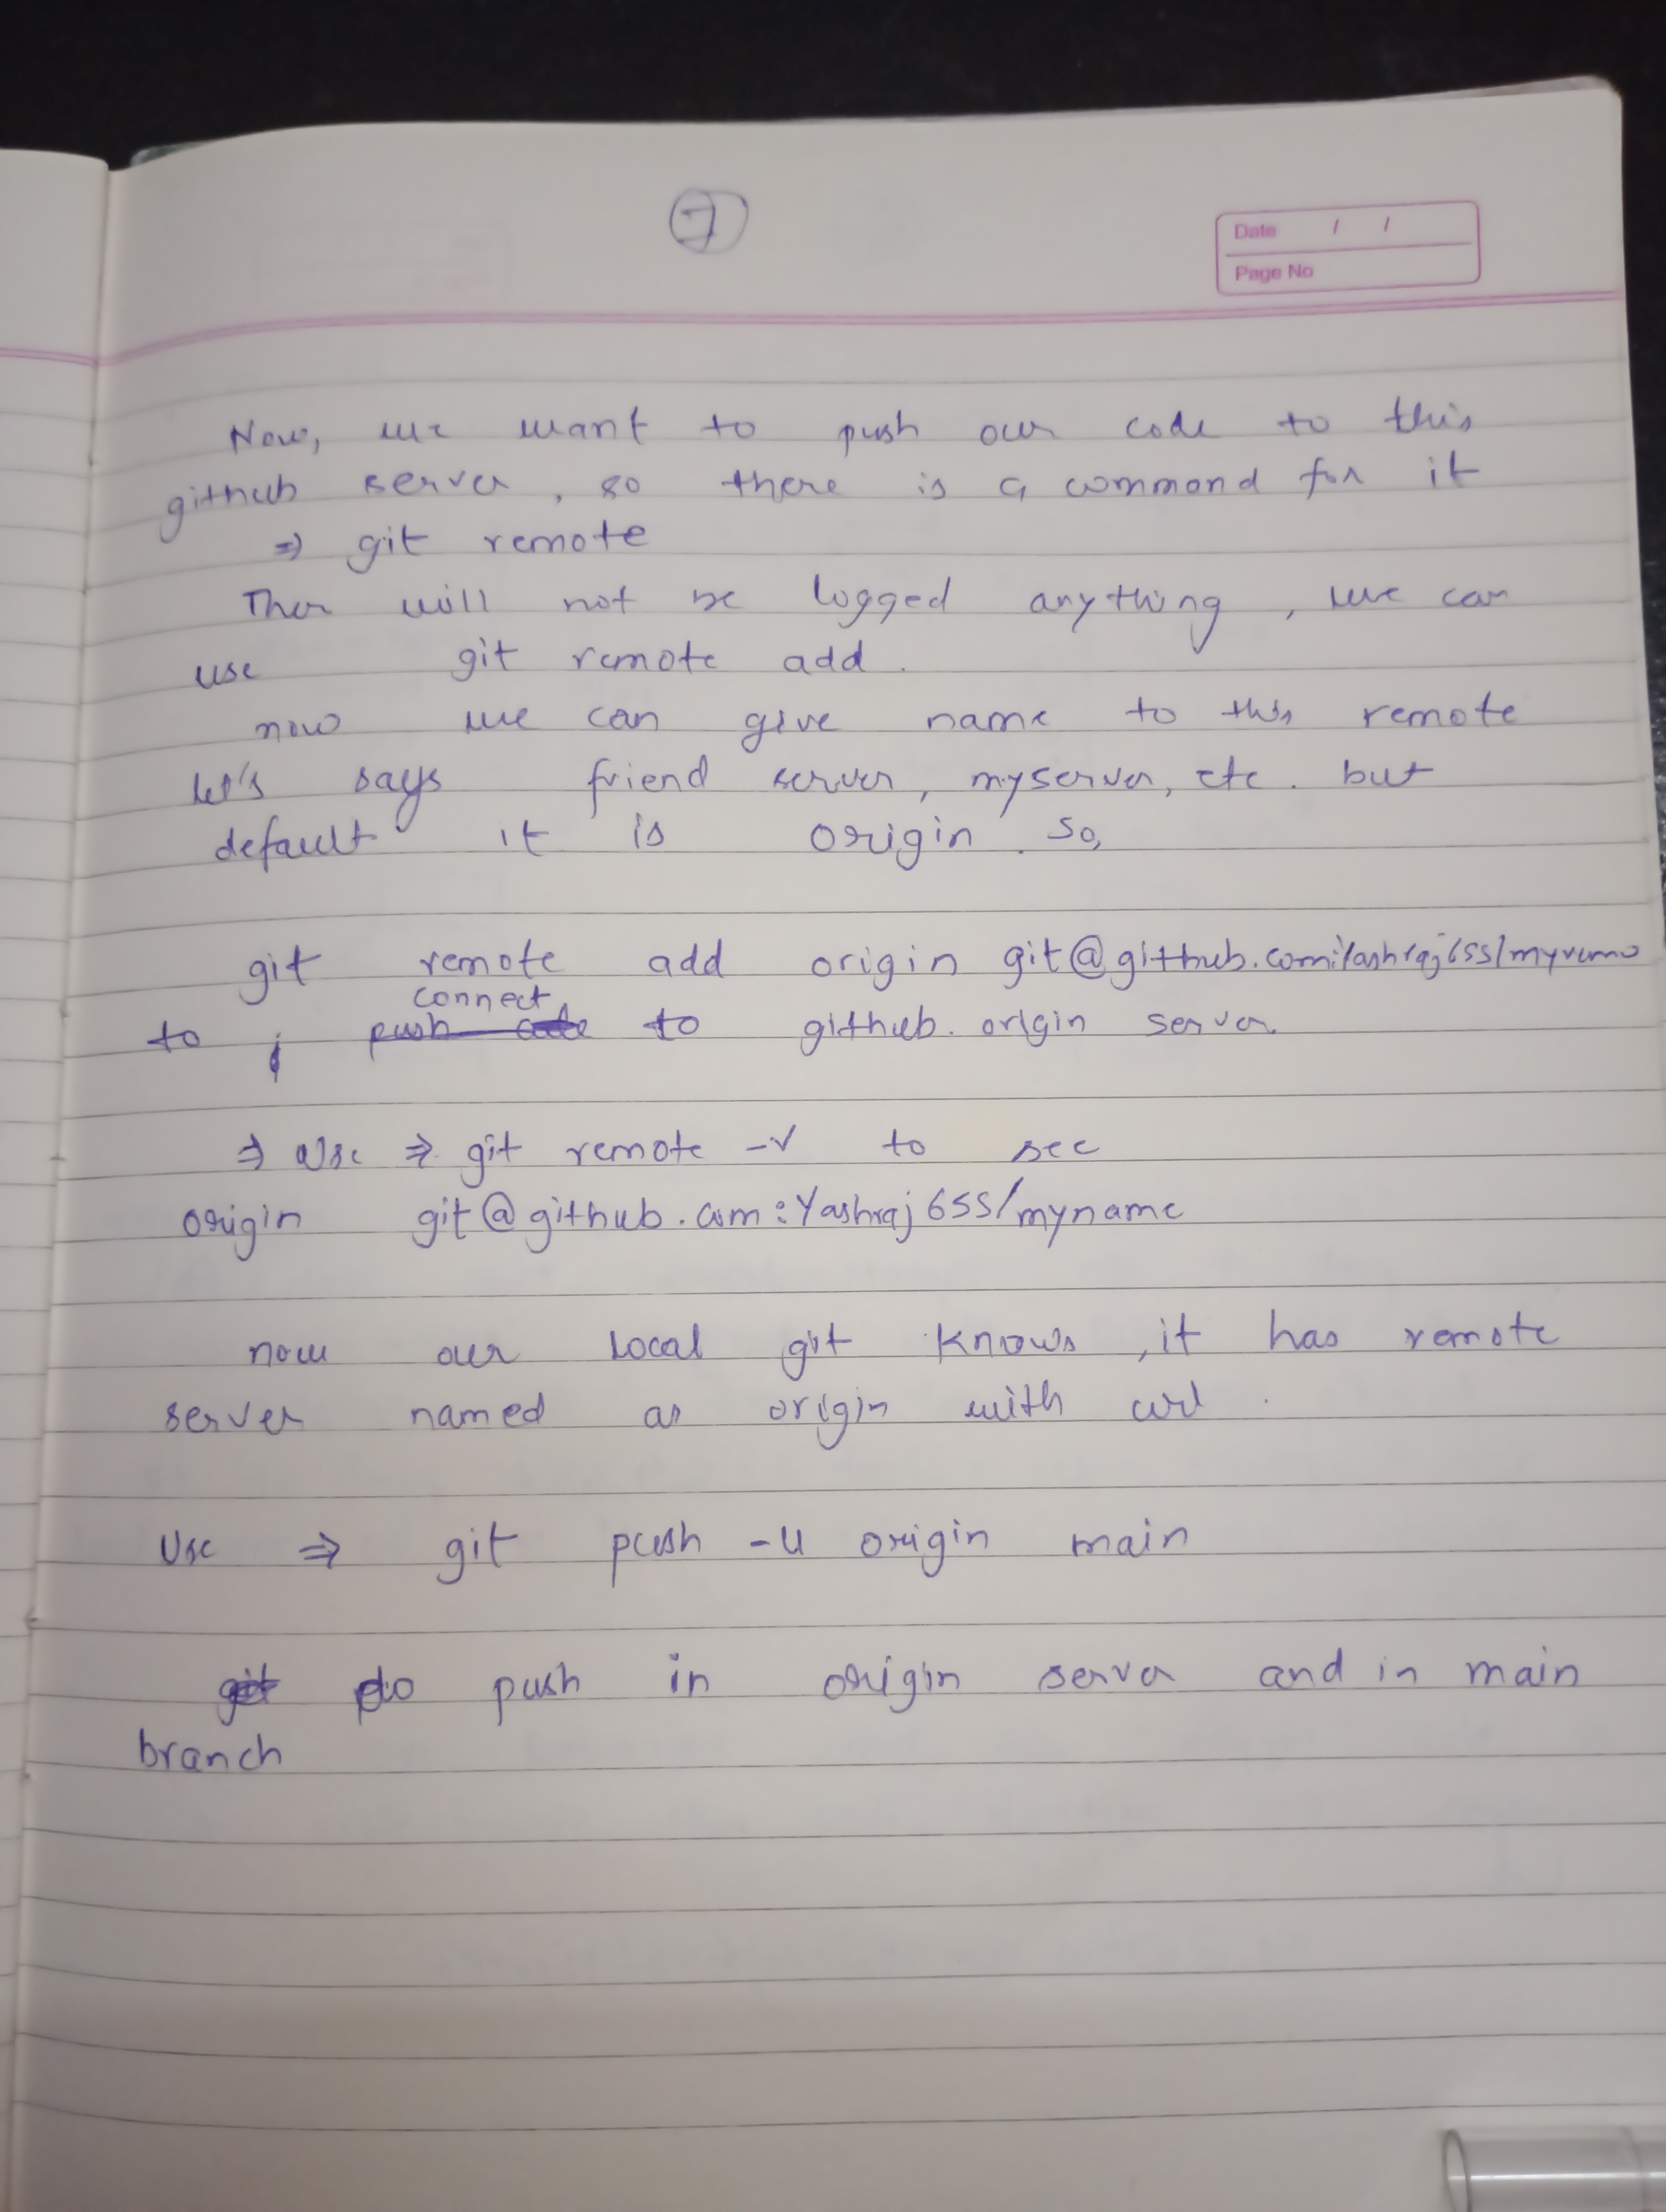 7
Date / /
Page No
Now, we want to push our code to this
github server, so there is a command for it
⇒ git remote
Ther will not be logged anything, we can
use git remote add.
now we can give name to this remote
let's says friend server, myserver, etc. but
default it is origin. so,
git remote add origin git@github.com:Yashraj655/
connect
to push code to github. origin server.
⇒ Use ⇒ git remote -v to see
origin git@github.com:Yashraj655/myname
now our local git knows, it has remote
server named as origin with url.
Use ⇒ git push -u origin main
git do push in origin server and in main
branch